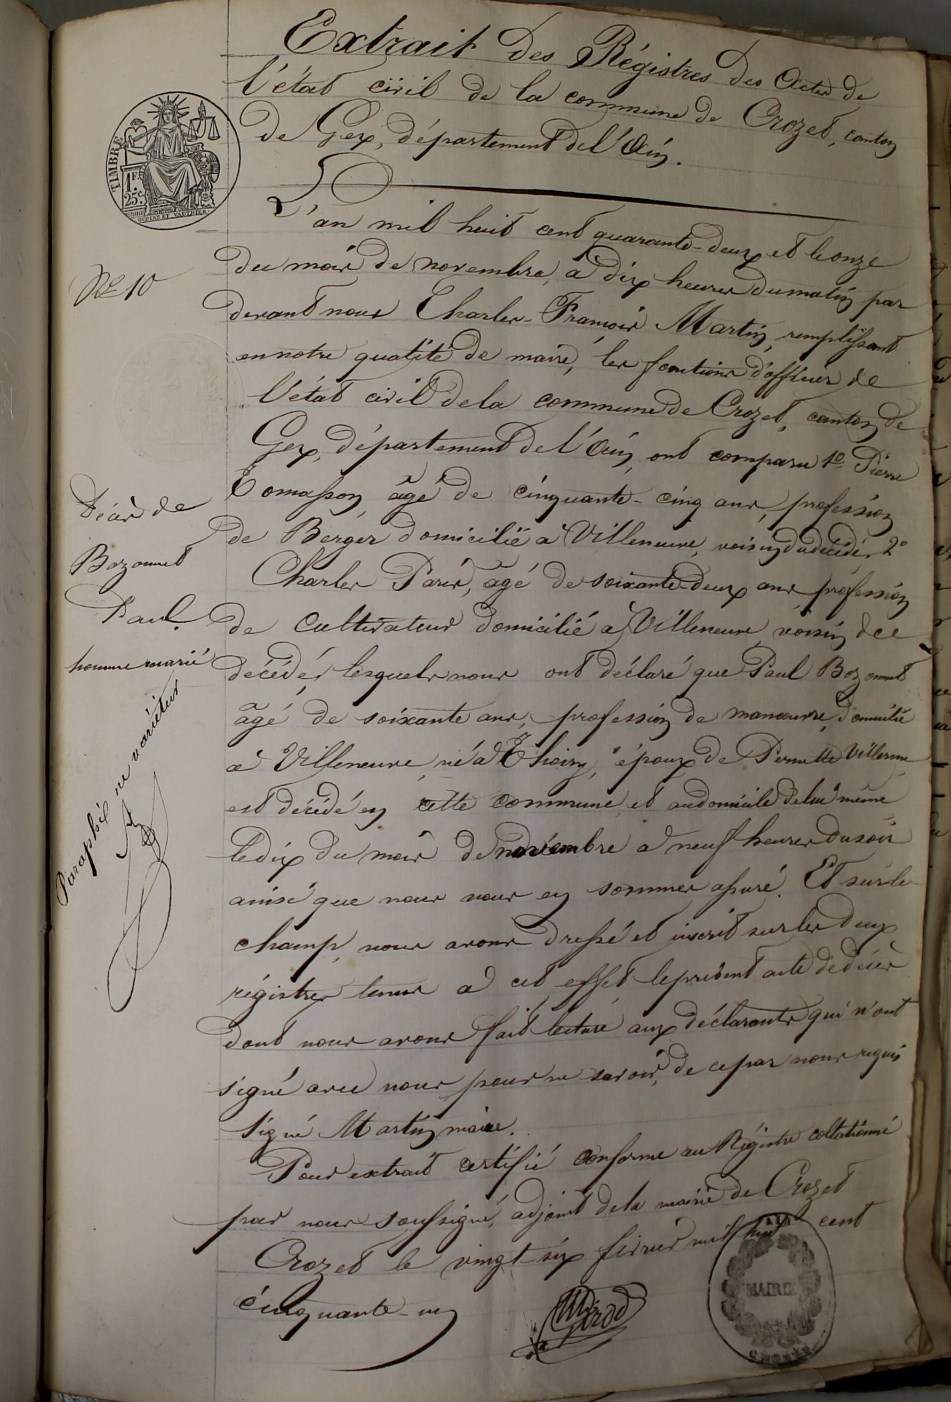 Extrait des Régistres des Actes de
l'état civil de la commune de Crozet, canton
de Gex, département de l'Ain.
TIMBRE
1 FR
25 c.
L'an mil huit cent quarante-deux et le onze
du mois de novembre, à dix heures du matin par
devant nous Charles-François Martin, remplissant
en notre qualité de maire, les fonctions d'officier de
l'état civil de la commune de Crozet, canton de
Gex, département de l'Ain, ont comparu 1o Pierre
Tomasson, âgé de cinquante-cinq ans, profession
de Berger domicilié à Villeneuve, voisin du décédé, 2o
Charles Paris, âgé de soixante-deux ans, profession
de cultivateur domicilié à Villeneuve voisin dce
décédé, lesquels nous ont déclaré que Paul Bozonnet
âgé de soixante ans, profession de manoeuvre, domicilié
à Villeneuve, né à Thoiry, époux de Pernette Villerme
est décédé en cette commune et au domicile de lui même
le dix du mois de novembre à neuf heures du soir
ainsi que nous nous en sommes assuré. Et sur le
champ, nous avons dressé et inscrit sur les deux
régistres tenus à cet effet le présent acte de décès
dont nous avons fait lecture aux déclarants qui n'ont
signé avec nous pour ne savoir, de ce par nous requis
signé Martin maire.
Pour extrait certifié conforme au Régistre collationné
par nous soussigné, adjoint de la mairie de Crozet
Crozet le vingt-six février mil huit cent
cinquante-un
No 10
Décès de
Bozonnet
Paul.
homme marié
Paraphé ne varietur
MAIRIE